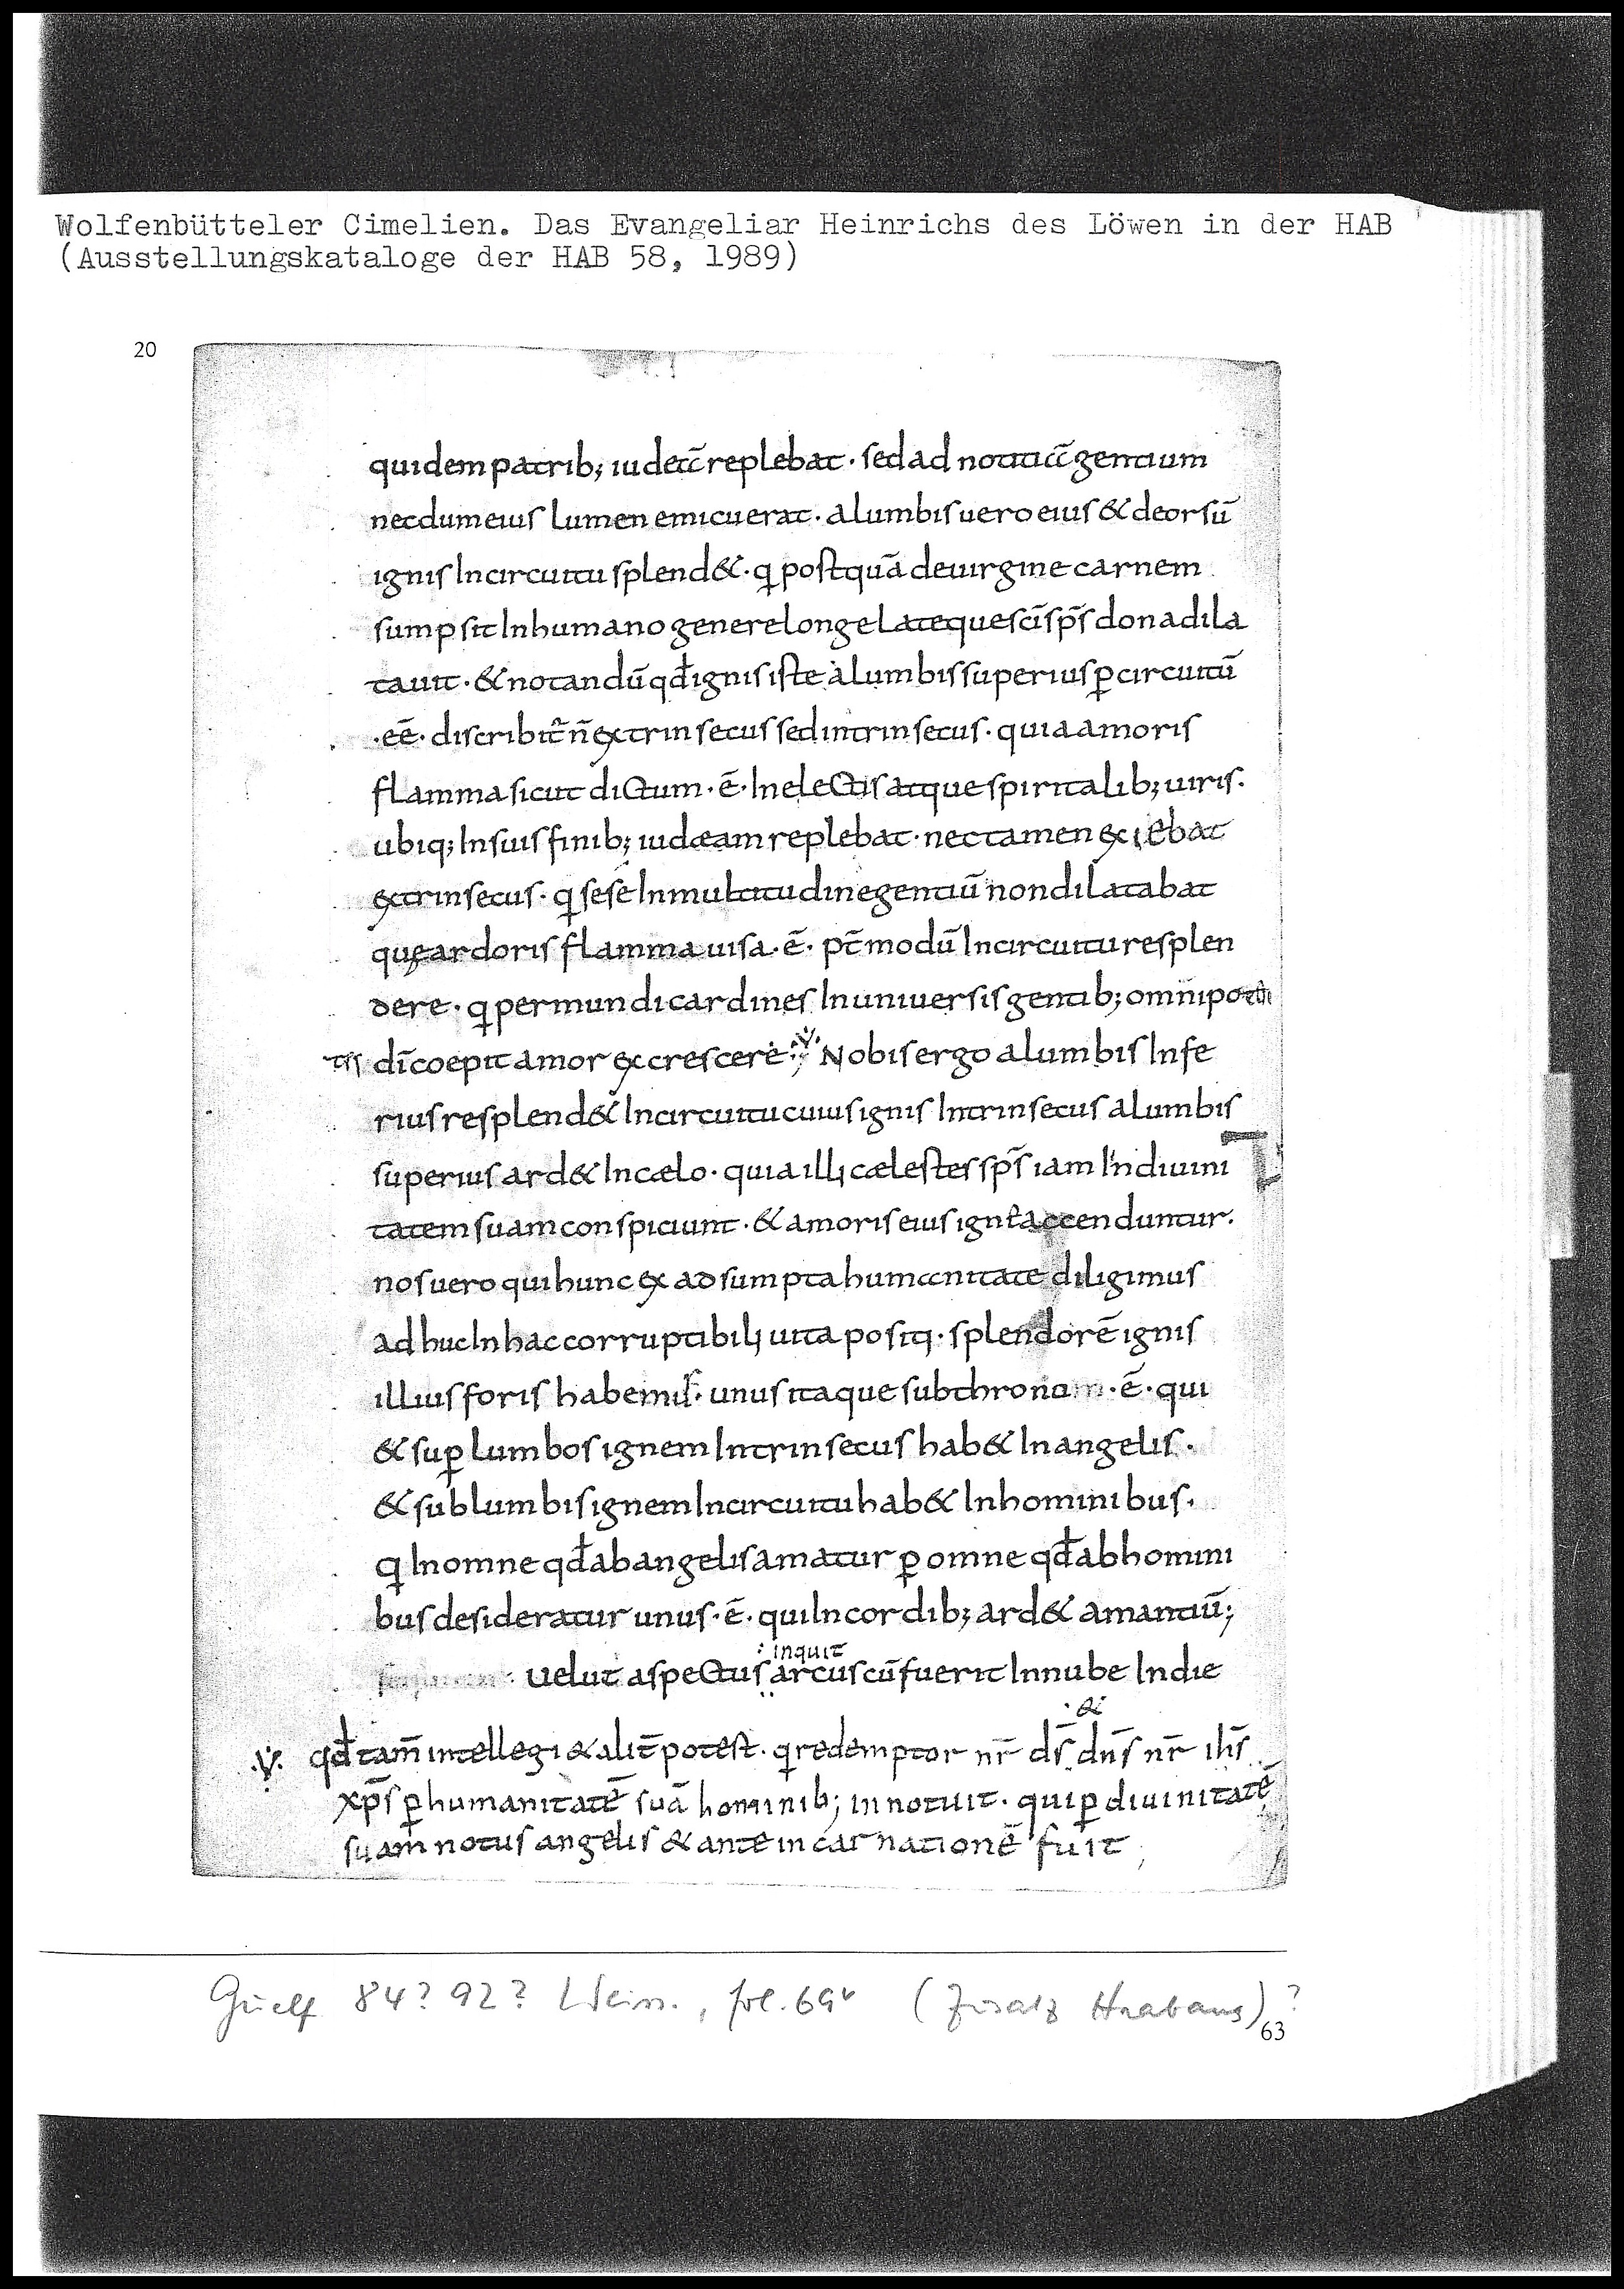 Wolfenbütteler Cimelien. Das Evangeliar Heinrichs des Löwen in der HAB
(Ausstellungskataloge der HAB 58, 1989)
20
quidem patrib; iudeā replebat · sed ad notitiā gentium
necdum eius lumen emicuerat · a lumbis uero eius & deorsū
ignis In circuitu splend& · q postquā de uirgine carnem
sumpsit In humano genere longe lateque sc̄i sp̄s dona dila
tauit · & notandū qđ ignis iste a lumbis superius ꝑ circuitū
· eē · discribit̄ n̄ extrinsecus sed intrinsecus · quia amoris
flamma sicut dictum · ē · In electis atque spiritalib; uiris ·
ubiq; In suis finib; iudæam replebat · nec tamen exiebat
extrinsecus · q sese In multitudine gentiū non dilatabat
quę ardoris flamma uisa · ē · pt̄ modū In circuitu resplen
dere · q per mundi cardines In uniuersis gentib; omnipotēn
tis dī coepit amor excrescere ·;ѱ· Nobis ergo a lumbis Infe
rius resplend& In circuitu cuius ignis Intrinsecus a lumbis
superius ard& In cælo · quia illi cælestes sp̄s iam In diuini
tatem suam conspiciunt · & amoris eius igne accenduntur ·
nos uero qui hunc ex adsumpta humanitate diligimus
ad huc In hac corruptibili uita positi · splendorē ignis
illius foris habemus · unus itaque sub throno · ē · qui
& suꝑ lumbos ignem Intrinsecus hab& In angelis ·
& sub lumbis ignem In circuitu hab& In hominibus ·
q In omne qđ ab angelis amatur ꝑ omne qđ ab homini
bus desideratur unus · ē · qui In cordib; ard& amantiū;
: inquit
uelut aspectus arcus cū fuerit In nube In die
· &
·ѱ· qđ tam̄ intellegi & alit̄ potest · q redemptor nr̄ ds̄ dn̄s nr̄ ih̄s
xp̄s ꝑ humanitatē suā hominib; innotuit · qui ꝑ diuinitatē
suam notus angelis & ante incarnationē fuit ;
Guelf 84? 92? Weiss., fol. 69v (Zusatz Hrabans)?
63